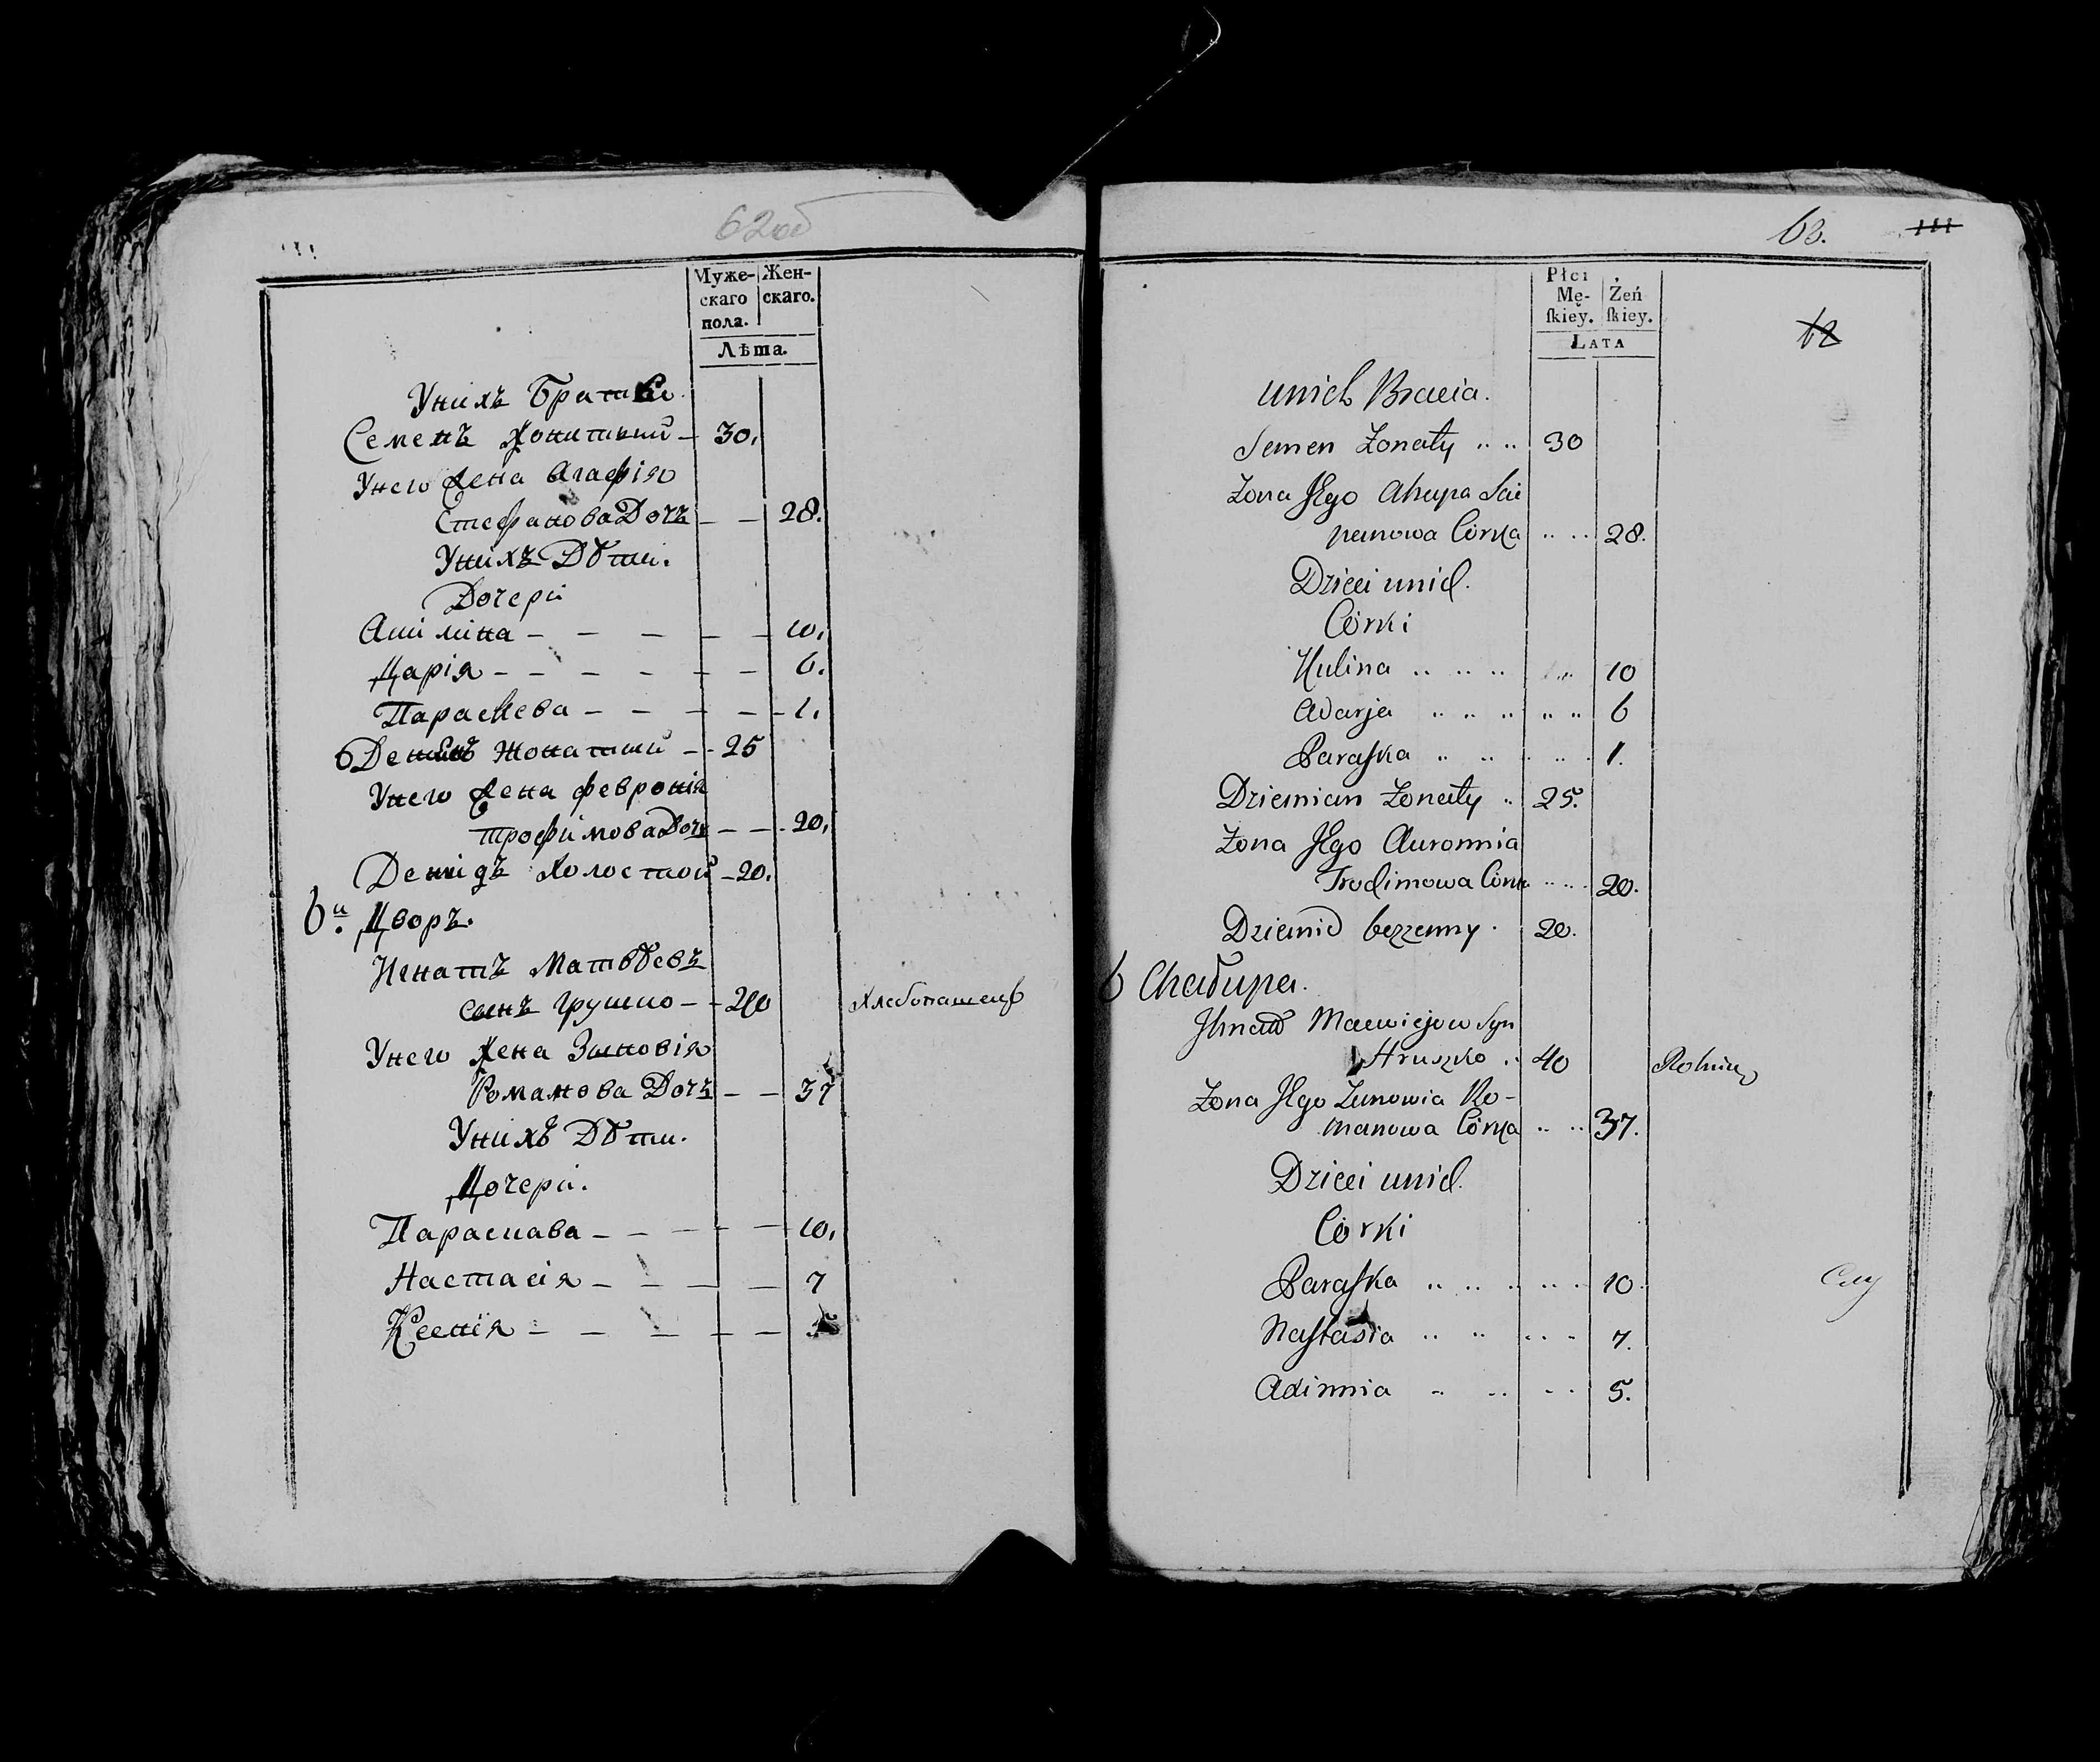 62об
Муже- Жен-
скаго скаго.
пола.
Лѣта.
Унихъ Братья
Семенъ Жонатый — 30.
Унего Жена Агафія
Стефанова Дочь — — 28.
Унихъ Дѣти.
Дочери
Акилина — — — — — 10.
Дарія — — — — — — 6.
Параскева — — — — — 1.
Демьянъ Жонатый — 25
Унего Жена Февронія
Трофимова Дочь — — 20.
Демидъ Холостой — 20.
6й Дворъ.
Игнатъ Матвѣевъ
сынъ Грушко — 40 Хлебопашецъ
Унего Жена Зѣновія
Романова Дочь — — 37
Унихъ Дѣти.
Дочери.
Параскава — — — — 10.
Настасія — — — — 7
Ксенія — — — — — 5
63.
62
Płci
Mę- Żeń
ſkiey. ſkiey.
LATA
unich Bracia.
Semen Żonaty .. .. 30
Żona Jego Ahapa Scie
panowa Córka .. .. 28.
Dzieci unich.
Córki
Kulina .. .. .. .. 10
Adarja .. .. .. .. 6
Paraſka .. .. .. .. 1.
Dziemian Żonaty .. 25.
Żona Jego Auronnia
Trochimowa Córka .. .. 20.
Dziemid bezzenny . 20.
6 Chałupa.
Ihnat Maciejow Syn
Hruszko .. 40 Rolnik
Żona Jego Zunowia Ro-
manowa Córka .. .. 37.
Dzieci unich.
Córki
Paraſka .. .. .. .. 10.
Naſtasia .. .. .. .. 7.
Adinnia .. .. .. .. 5.